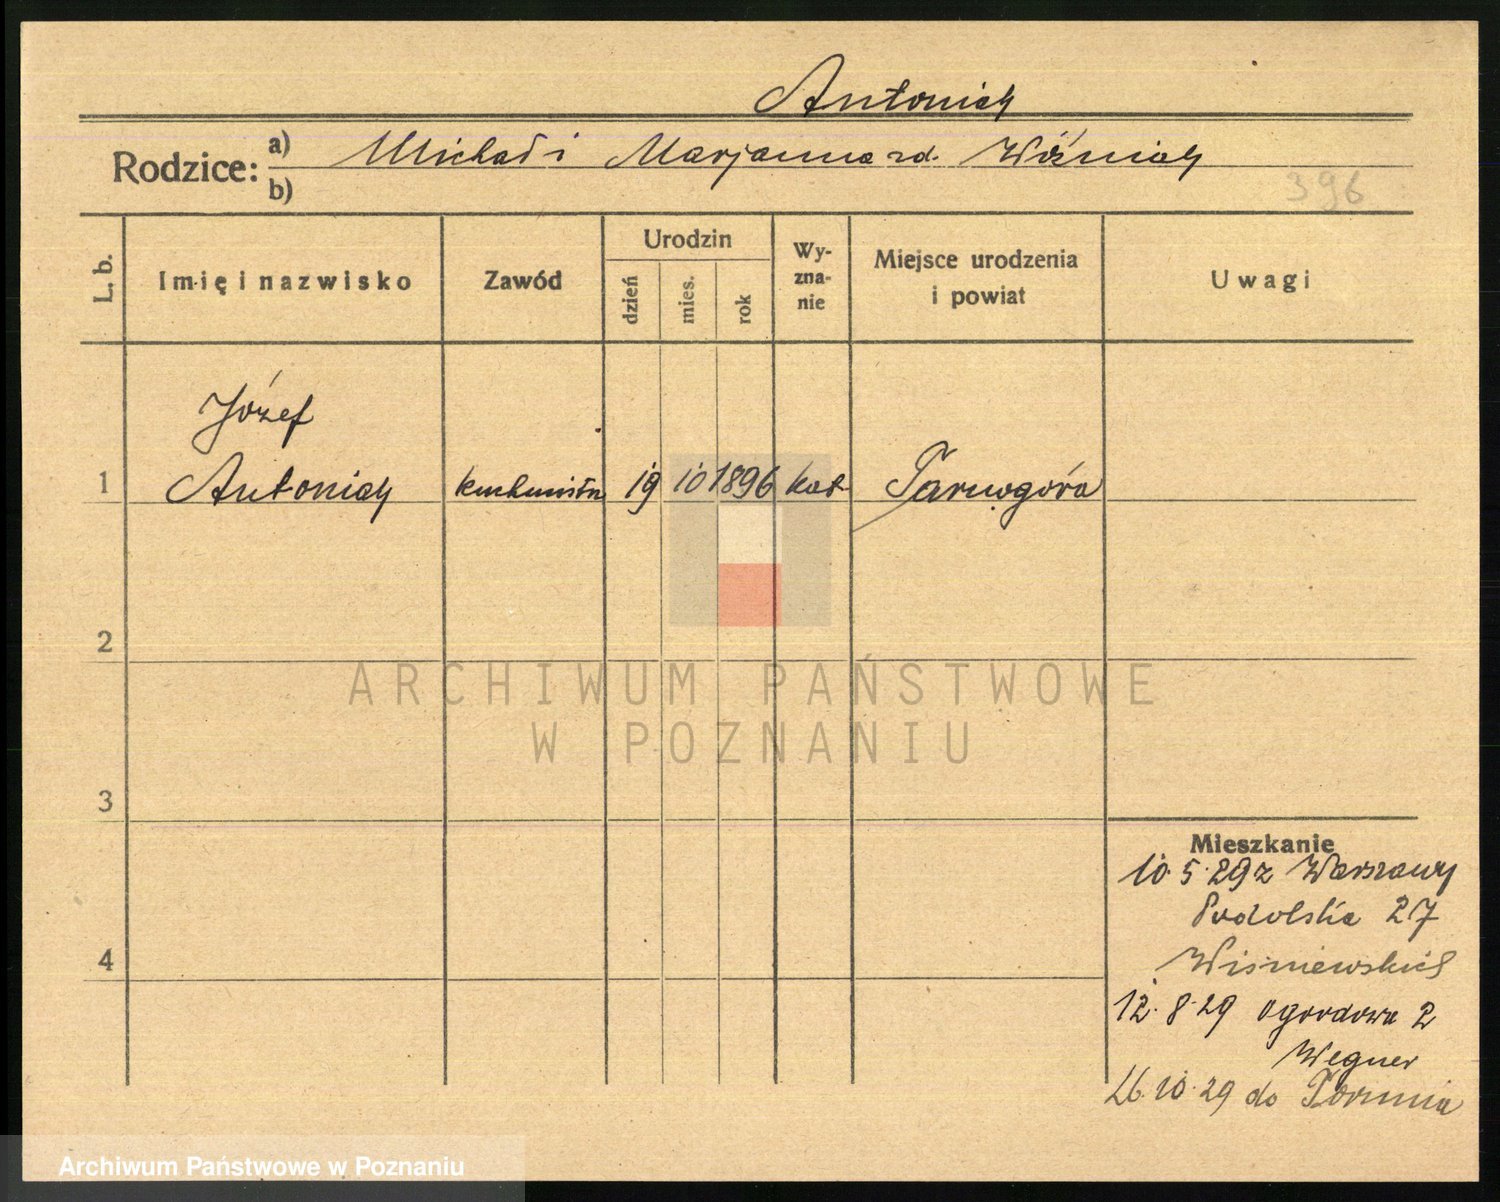 Antoniak
Rodzice: a) Michał i Marjanna zd. Woźniak
b)
396
L. b. Imię i nazwisko Zawód Urodzin dzień mies. rok Wy-zna-nie Miejsce urodzenia i powiat Uwagi
Józef
1 Antoniak kuchmistrz 19 10 1896 kat Tarnogóra
2
ARCHIWUM PAŃSTWOWE
W POZNANIU
3
Mieszkanie
10.5.29 z Warszawy
Podolska 27
4 Wiśniewskich
12.8.29 Ogrodowa 2
Wegner
26.10.29 do Torunia
Archiwum Państwowe w Poznaniu